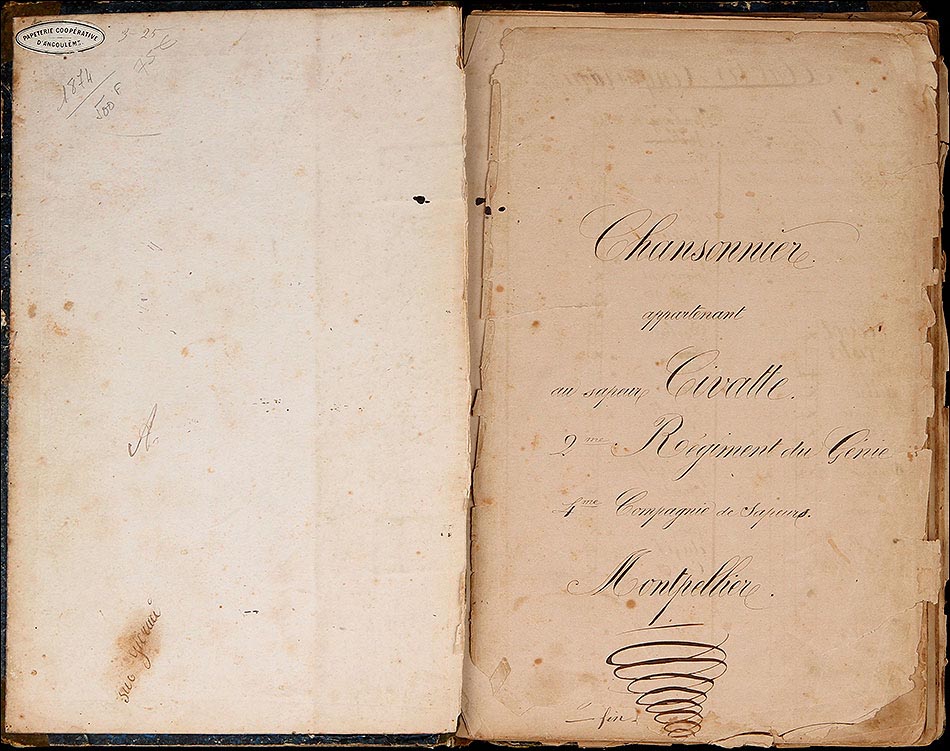 PAPETERIE COOPÉRATIVE
D'ANGOULÊME
3-25
75€
1874
500 F
Chansonnier.
appartenant
au sapeur Civatte.
2me. Régiment du Génie
4me Compagnie de Sapeurs.
Montpellier.
fin